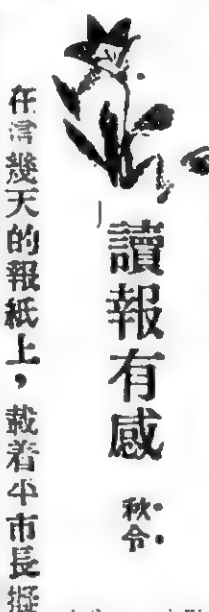 讀報有感
秋令
在這幾天的報紙上，載着本市長擬